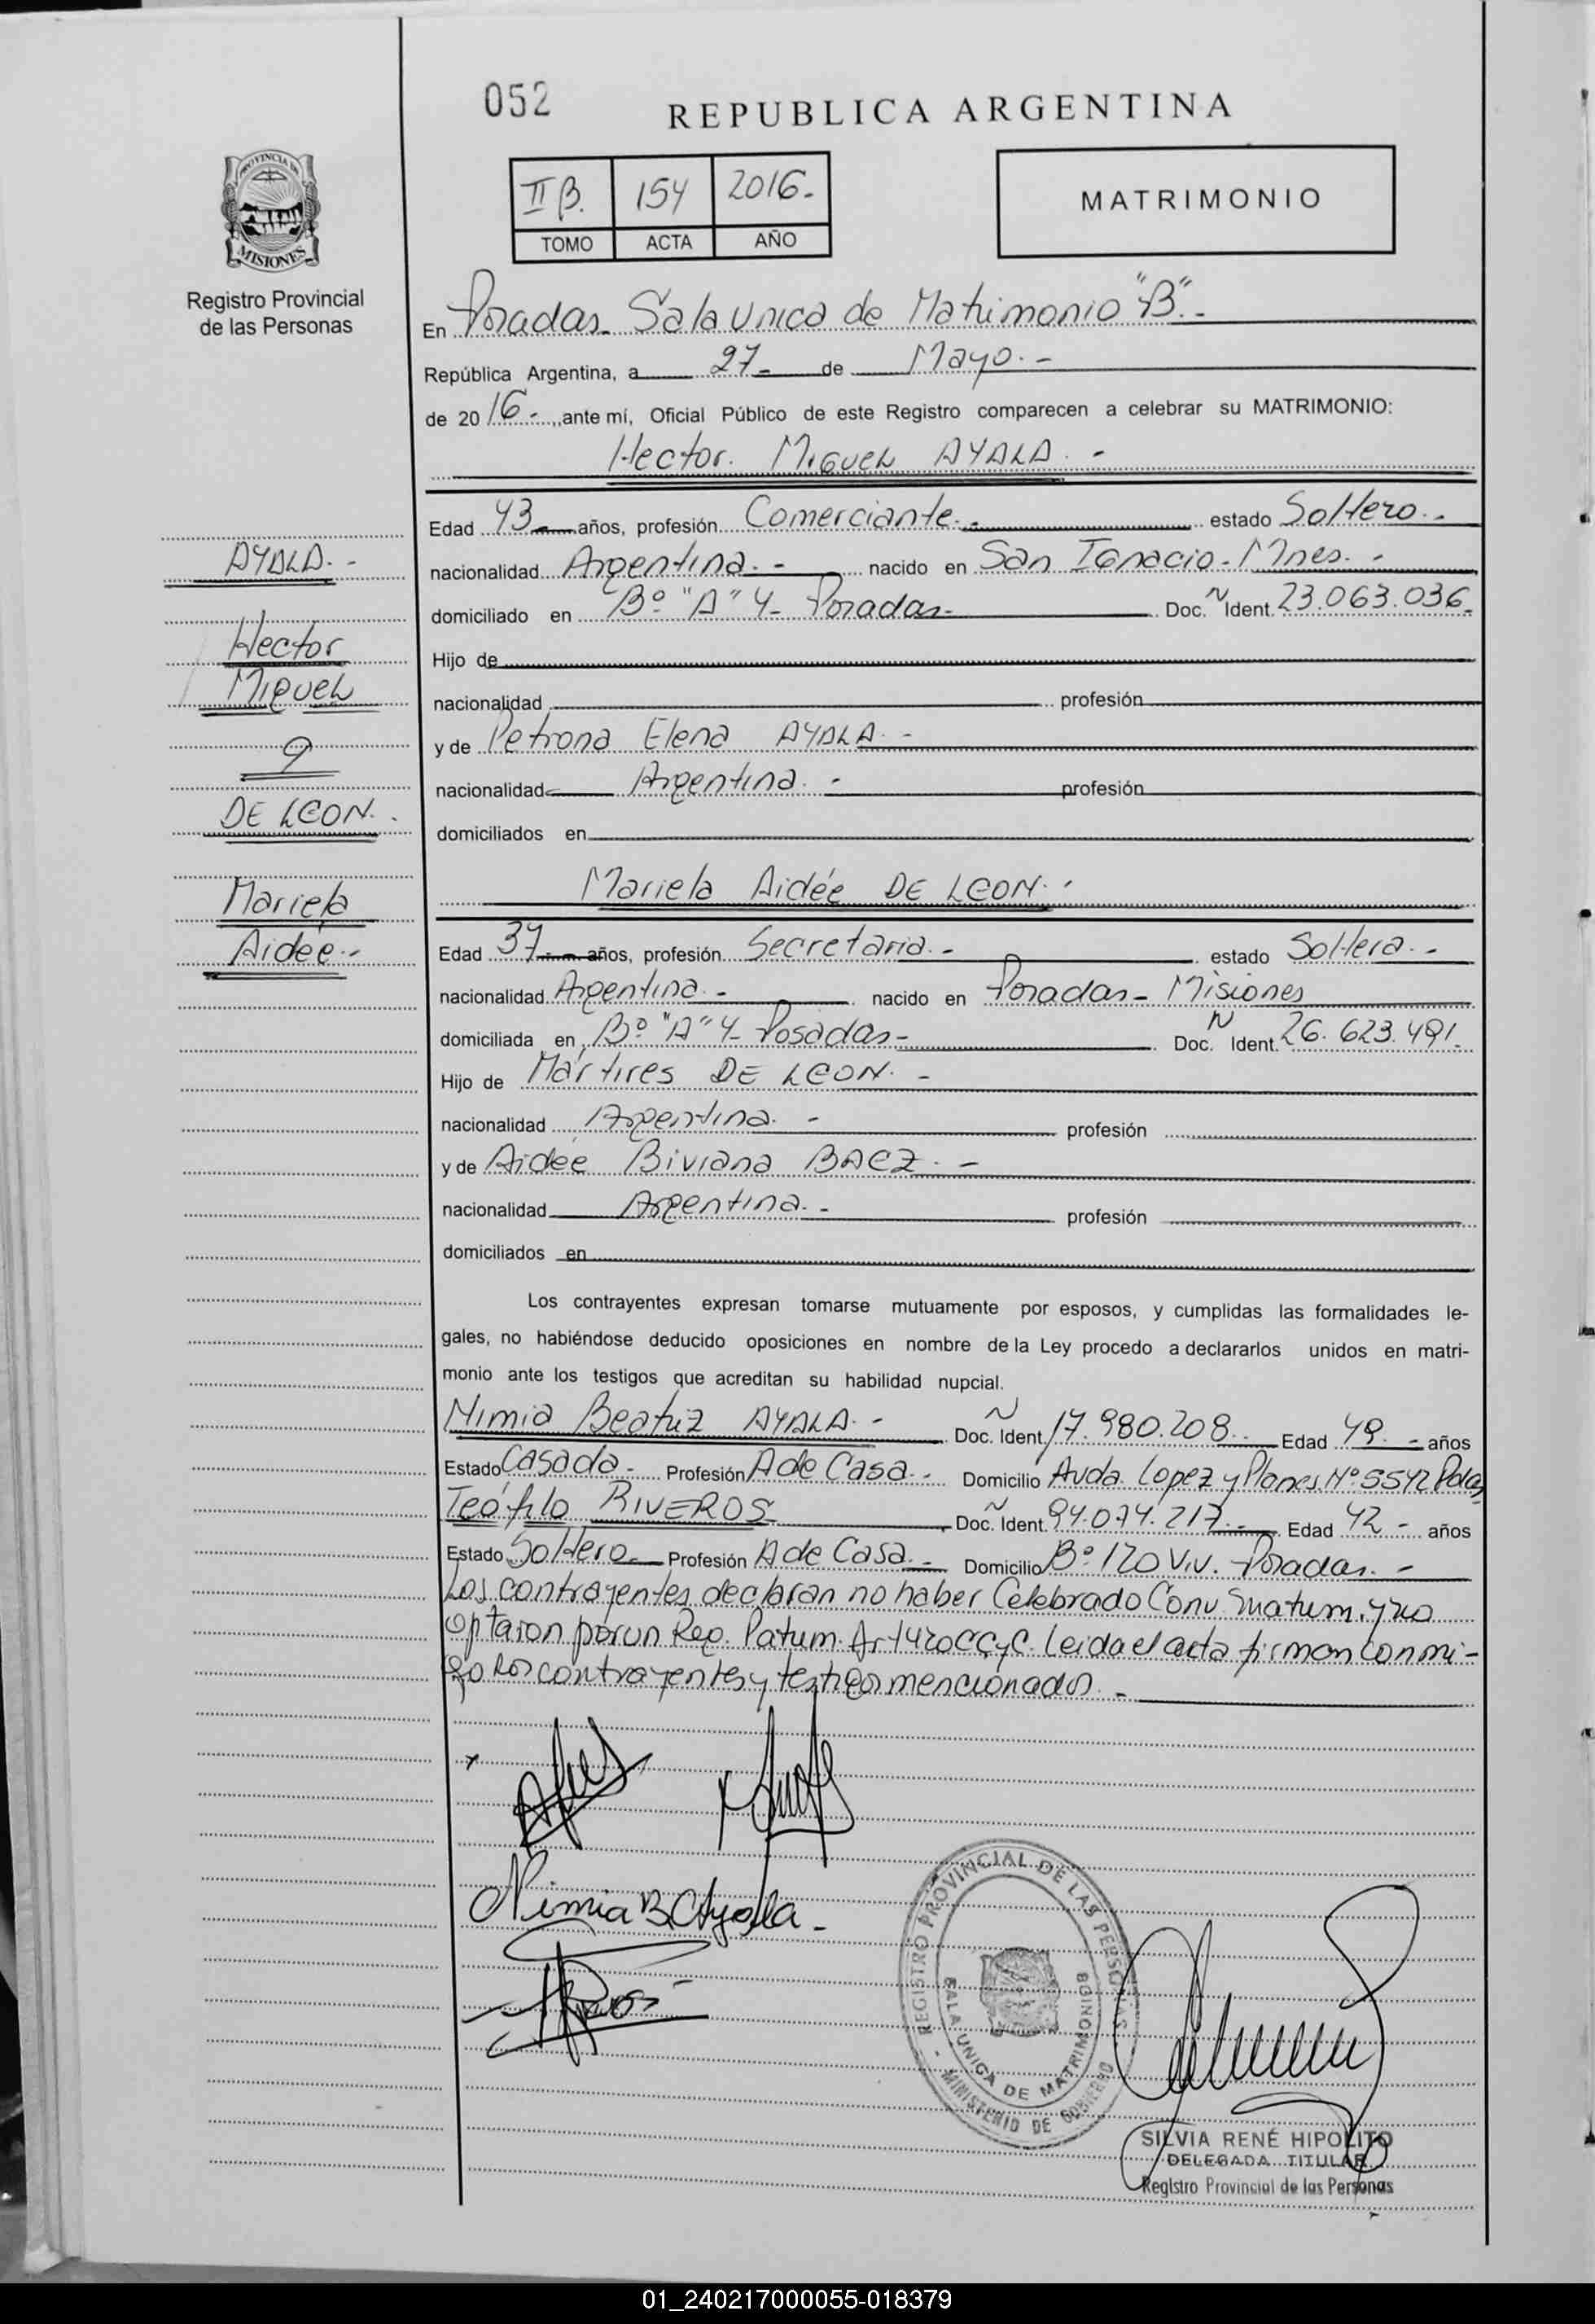 052
REPUBLICA ARGENTINA
PROVINCIA DE MISIONES
Registro Provincial
de las Personas
II B. 154 2016.-
TOMO ACTA AÑO
MATRIMONIO
En Posadas- Sala Unica de Matrimonio "B".-
República Argentina, a 27- de Mayo.-
de 20 16.- ,,ante mí, Oficial Público de este Registro comparecen a celebrar su MATRIMONIO:
Hector Miguel AYALA.-
Edad 43- años, profesión Comerciante.- estado Soltero.-
nacionalidad Argentina.- nacido en San Ignacio- Mnes.-
domiciliado en Bº "A" 4- Posadas- Doc. N Ident. 23.063.036.
Hijo de
nacionalidad profesión
y de Petrona Elena AYALA.-
nacionalidad Argentina.- profesión
domiciliados en
Mariela Aidée DE LEON.-
Edad 37- años, profesión Secretaria.- estado Soltera.-
nacionalidad Argentina.- nacido en Posadas- Misiones
domiciliada en Bº "A" 4- Posadas- Doc. N Ident. 26.623.491.
Hijo de Mártires DE LEON.-
nacionalidad Argentina.- profesión
y de Aidée Biviana BAEZ.-
nacionalidad Argentina.- profesión
domiciliados en
AYALA.-
Hector
Miguel
y
DE LEON.
Mariela
Aidée.-
Los contrayentes expresan tomarse mutuamente por esposos, y cumplidas las formalidades le-
gales, no habiéndose deducido oposiciones en nombre de la Ley procedo a declararlos unidos en matri-
monio ante los testigos que acreditan su habilidad nupcial.
Nimia Beatriz AYALA.- Doc. N Ident. 17.980.208.- Edad 49.- años
Estado Casada- Profesión A de Casa.- Domicilio Avda. Lopez y Planes Nº 5542 Pdas
Teófilo RIVEROS- Doc. N Ident. 94.074.217.- Edad 42- años
Estado Soltero- Profesión A de Casa.- Domicilio Bº 120 Viv. Posadas.-
Los contrayentes declaran no haber Celebrado Conv. Matrim. y no
optaron por un Reg. Patrim. Art 420 CCyC. Leida el acta firman conmi-
go los contrayentes y testigos mencionados.-
Nimia B. Ayala-
REGISTRO PROVINCIAL DE LAS PERSONAS
SALA UNICA DE MATRIMONIOS
- MINISTERIO DE GOBIERNO
SILVIA RENÉ HIPOLITO
DELEGADA TITULAR
Registro Provincial de las Personas
01_240217000055-018379